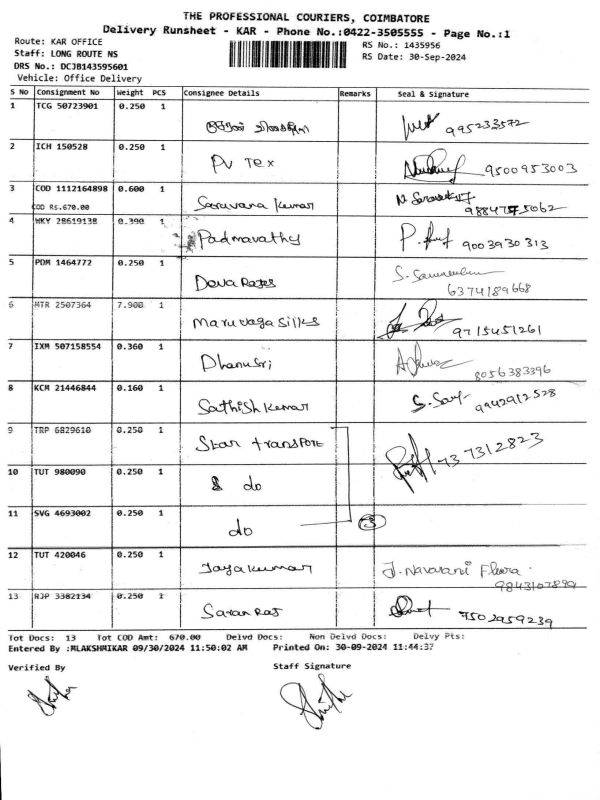 THE PROFESSIONAL COURIERS, COIMBATORE
Delivery Runsheet - KAR - Phone No.:0422-3505555 - Page No.:1
Route: KAR OFFICE
RS No.: 1435956
Staff: LONG ROUTE NS
RS Date: 30-Sep-2024
DRS No.: DCJB143595601
Vehicle: Office Delivery
S No Consignment No Weight PCS Consignee Details Remarks Seal & Signature
1 TCG 50723901 0.250 1 995233572
2 ICH 150528 0.250 1 PV Tex 9500953003
3 COD 1112164898 0.600 1 Saravana Kumar
COD Rs.670.00
4 WKY 28619138 0.390 1 Padmavathy 9003930313
5 PDM 1464772 0.250 1 Deva Rajes 6374189668
6 MTR 2507364 7.900 1 Maruvaga Silks 9715451261
7 IXM 507158554 0.360 1 Dhanusri 8056383396
8 KCM 21446844 0.160 1 Sathish Kumar 9942912528
9 TRP 6829610 0.250 1 Star transport 7373 12823
10 TUT 980090 0.250 1 do
11 SVG 4693002 0.250 1 do 3
12 TUT 420046 0.250 1 Jayakumar J. Navarani
9843107899
13 RJP 3382134 0.250 1 Saran Raj 7502959239
Tot Docs: 13 Tot COD Amt: 670.00 Delvd Docs: Non Delvd Docs: Delvy Pts:
Entered By :MLAKSHMIKAR 09/30/2024 11:50:02 AM Printed On: 30-09-2024 11:44:37
Verified By Staff Signature